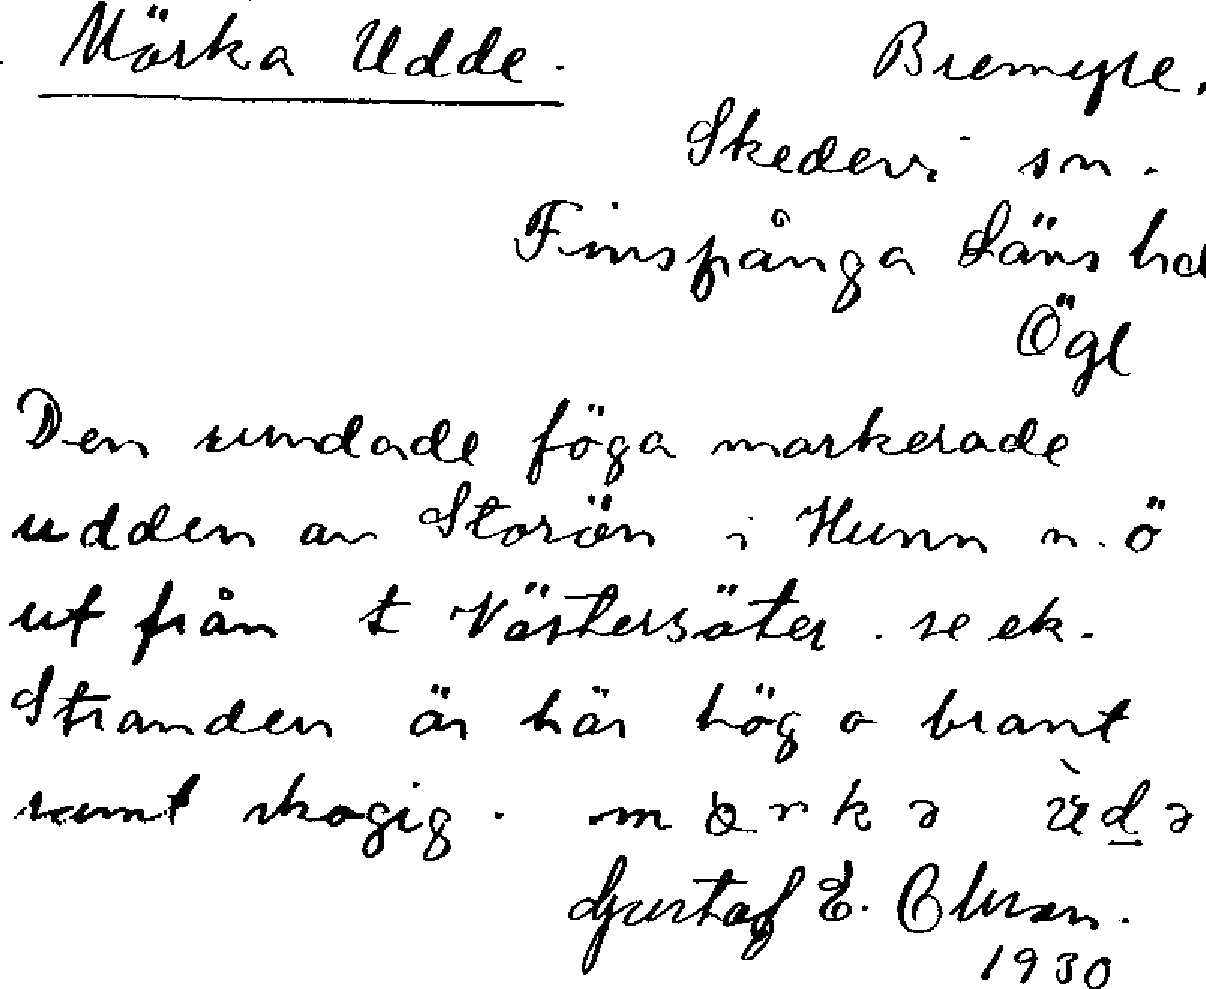 Mörka Udde. Bremyre,
Skedevi sn.
Finspånga Läns hd
Ögl
Den rundade föga markerade
udden av Storön i Hunn n.ö
ut från t Västersäter. se ek.
Stranden är här hög o brant
samt skogig.
Gustaf E.
1930